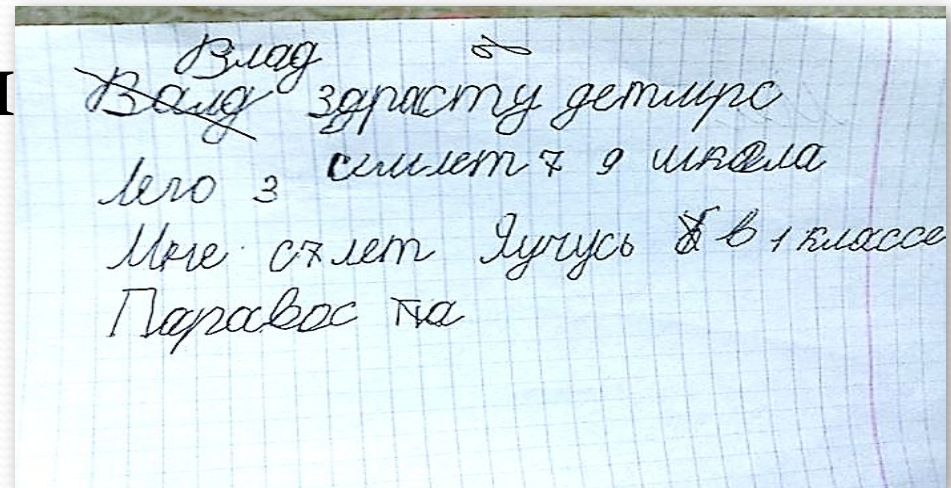 Влад
Валд здрасту детмирс
Лего з семлет 7 9 школа
Мне с7лет Яучусь в 1 классе
Паравос па